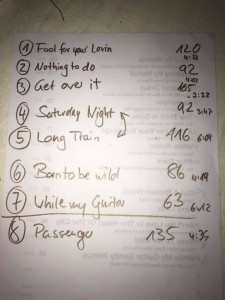 1 Fool for your Lovin 120
4:32
2 Nothing to do 92
4:01
3 Get over it 105
3:32
4 Saturday Night 92 3:47
5 Long Train 116 6:04
6 Born to be wild 86 4:19
7 While my Guitar 63 6:12
8 Passenger 135 4:35